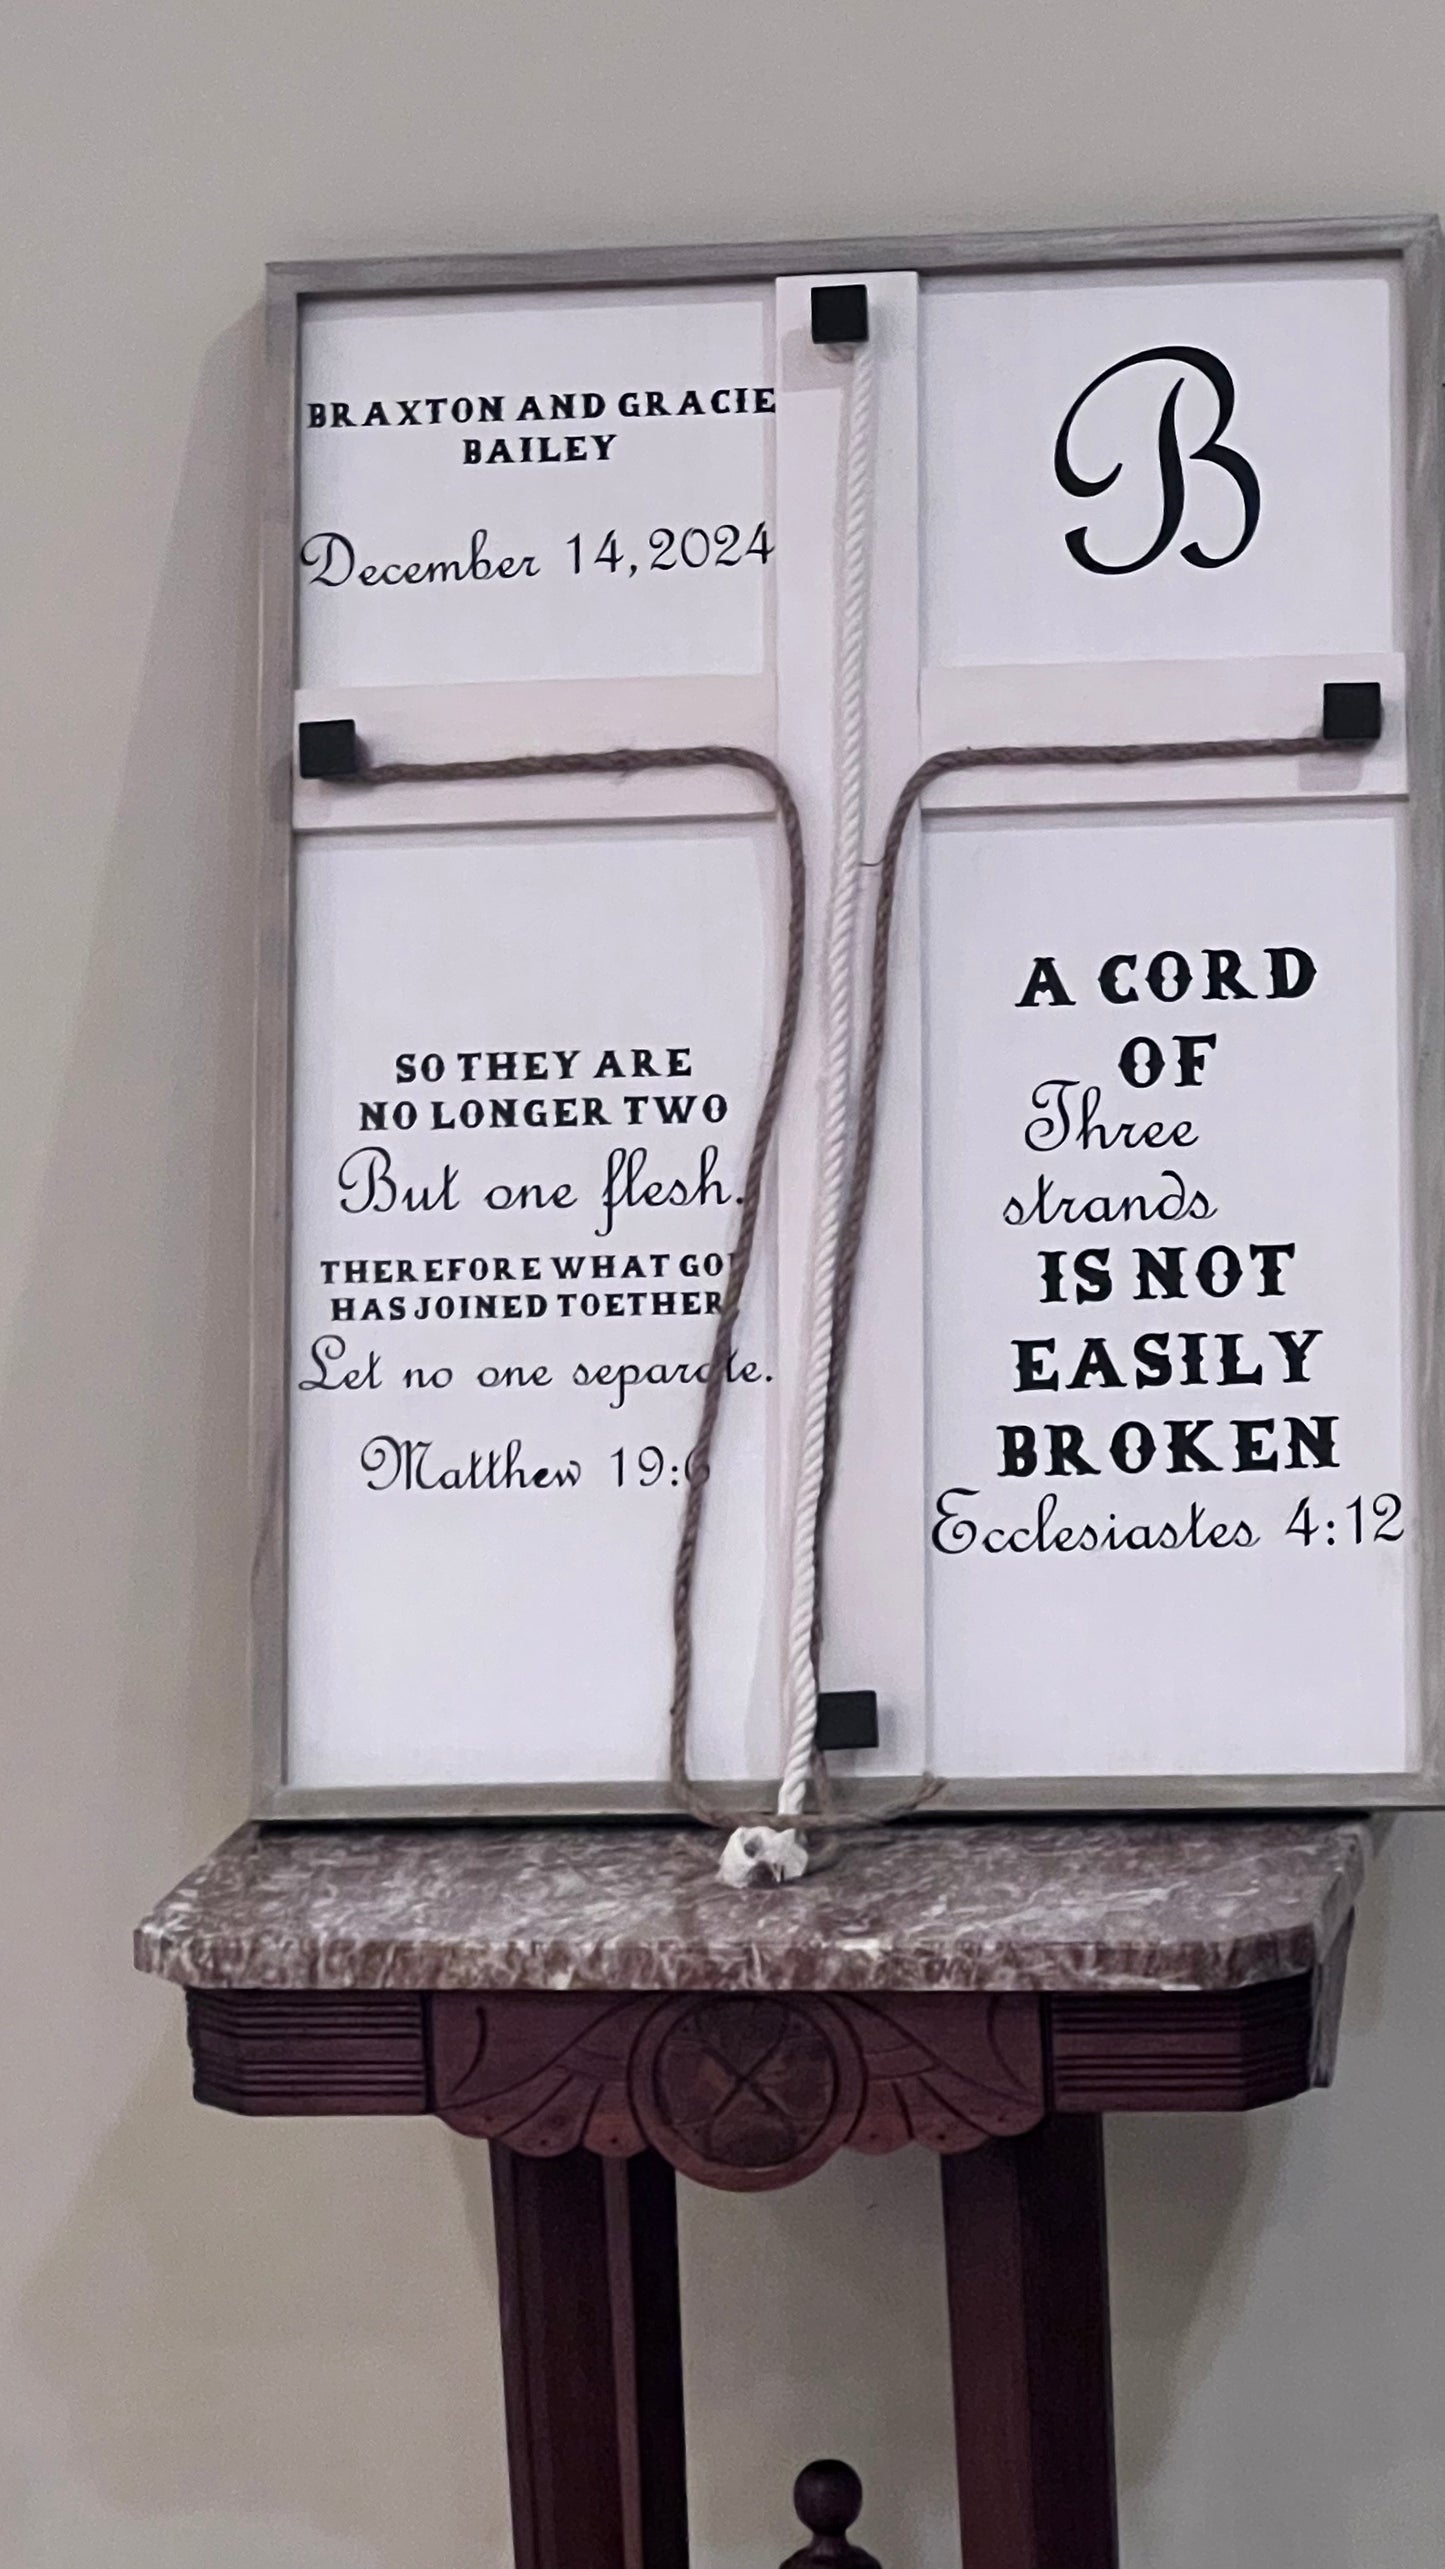 BRAXTON AND GRACIE
BAILEY
December 14, 2024
B
SO THEY ARE
NO LONGER TWO
But one flesh.
THEREFORE WHAT GO
HAS JOINED TOETHER,
Let no one separate.
Matthew 19:6
A CORD
OF
Three
strands
IS NOT
EASILY
BROKEN
Ecclesiastes 4:12